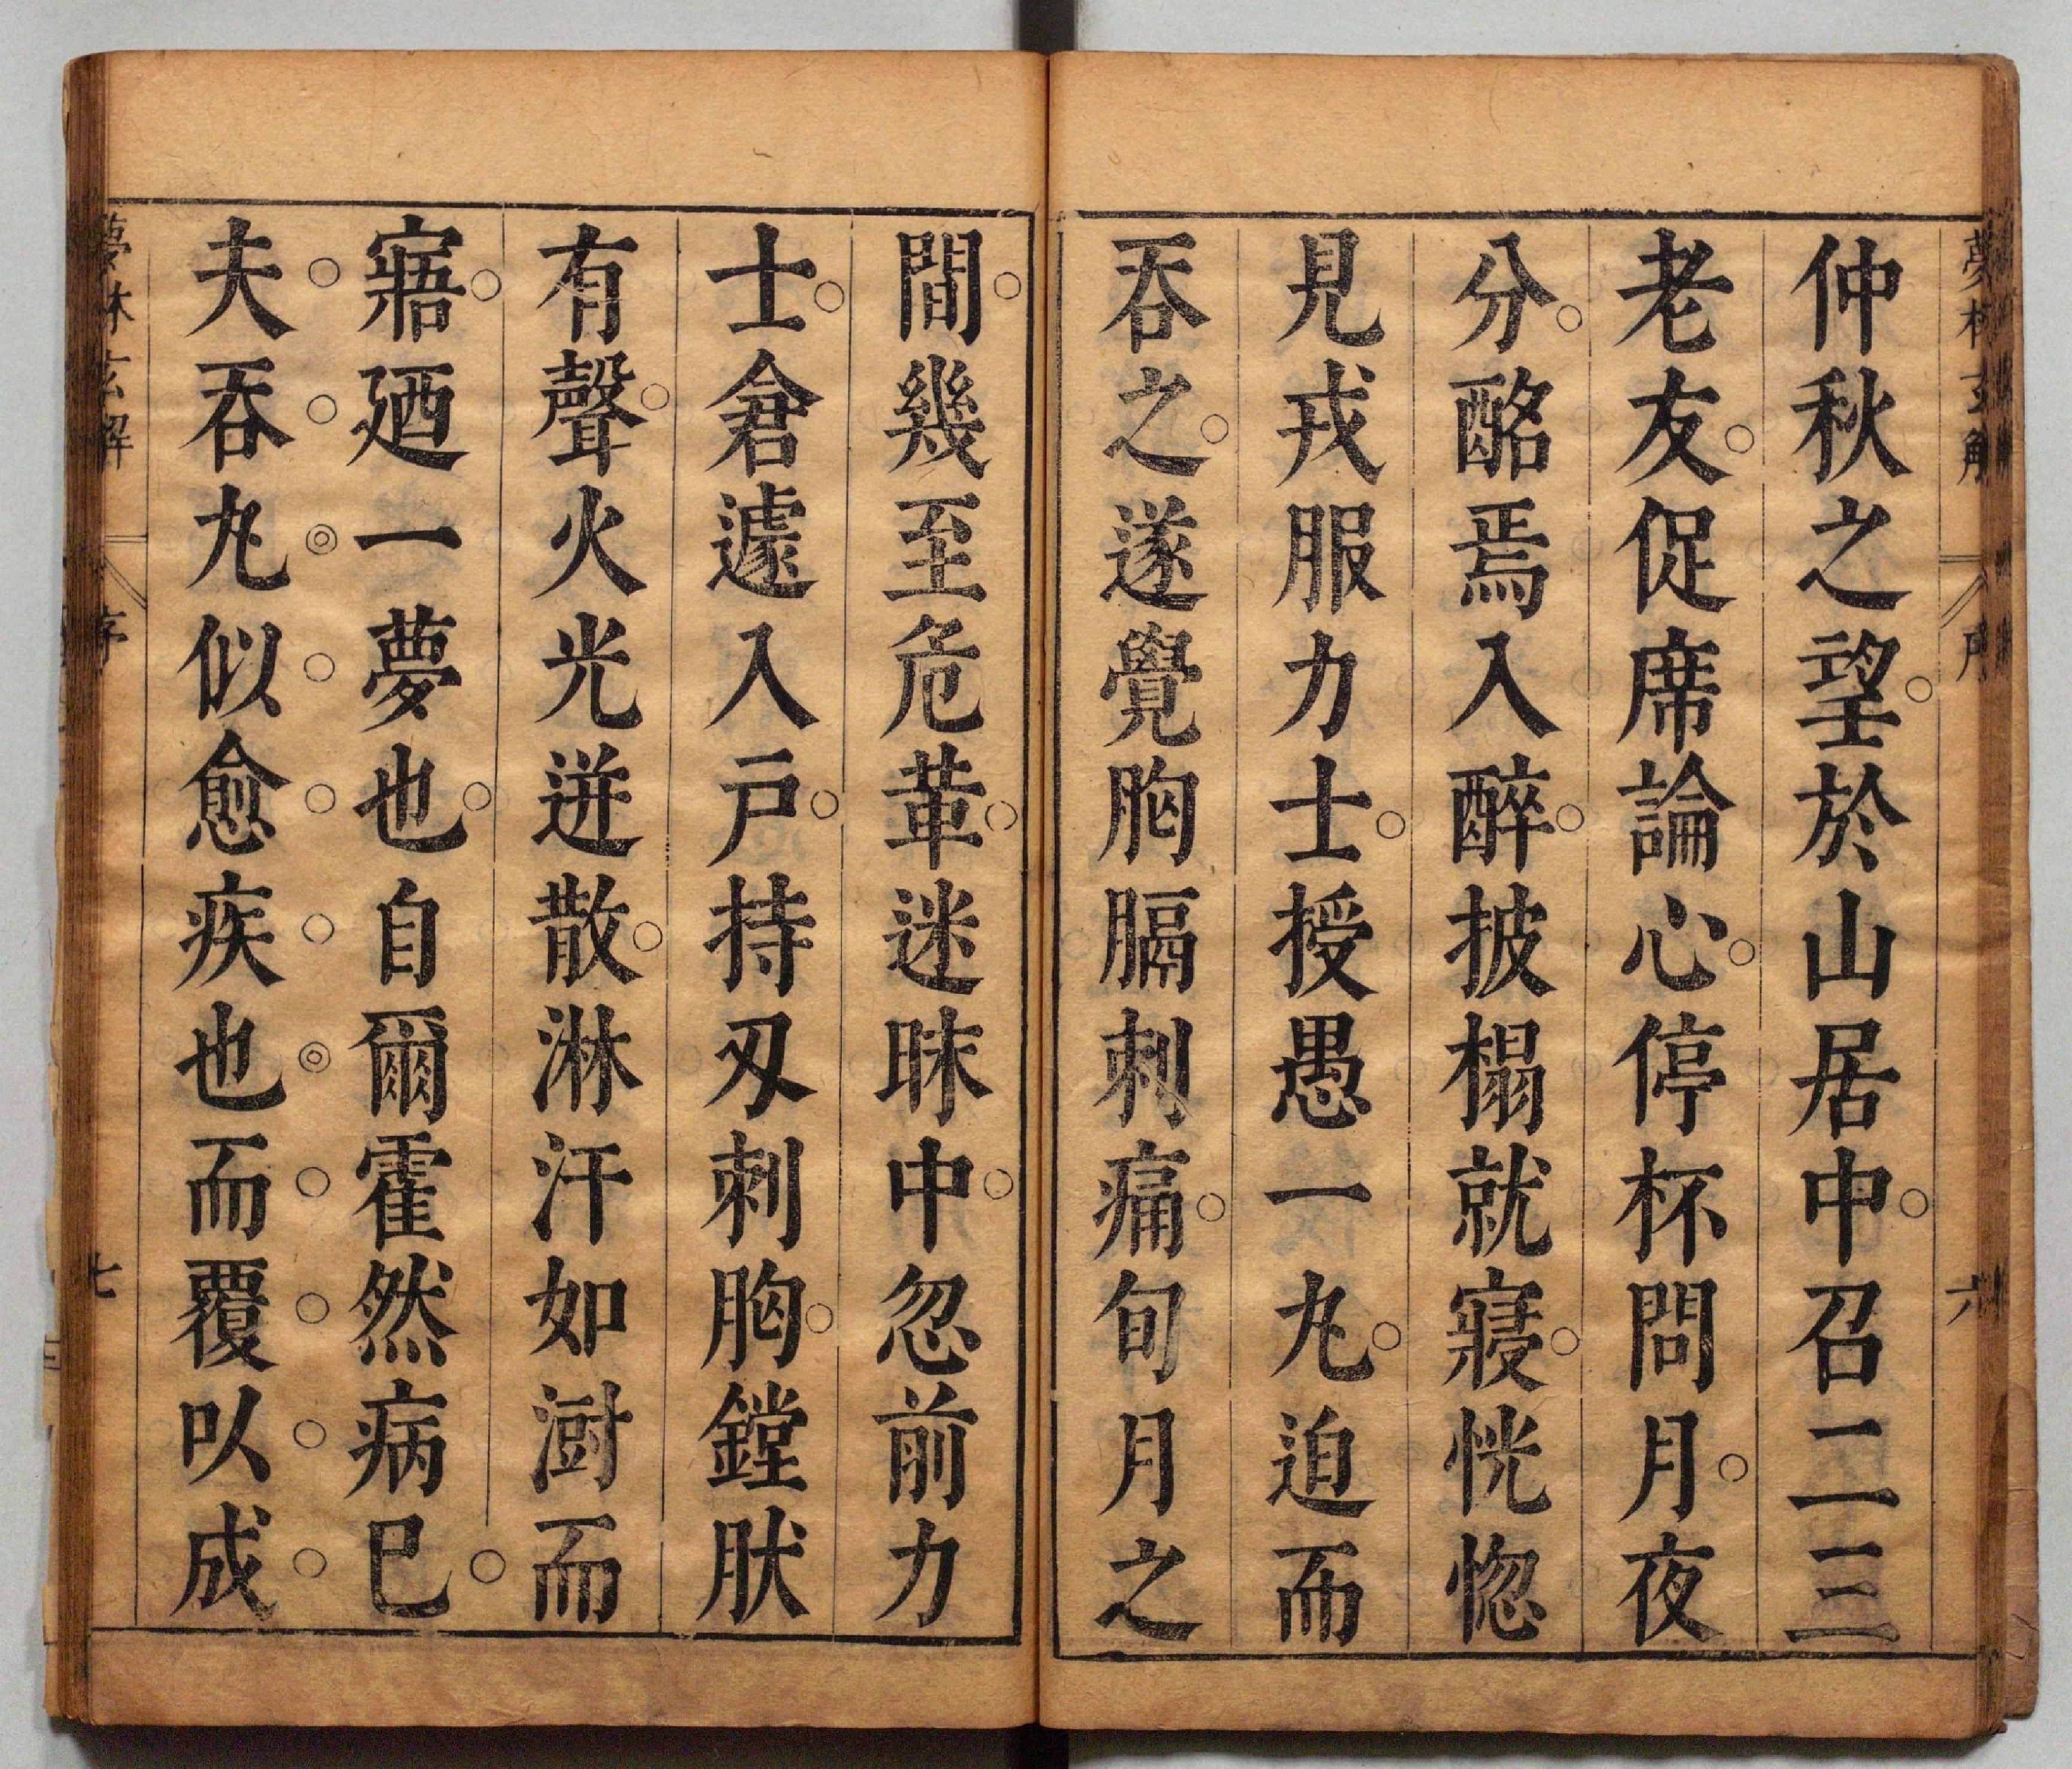 夢林玄解
序
六
仲秋之望於山居中召二三
老友促席論心停杯問月夜
分酩焉入醉披榻就寢恍惚
見戎服力士授愚一九迫而
吞之遂覺胸膈刺痛旬月之
間幾至危革迷昧中忽前力
士倉遽入戸持刄刺胸鏜肰
有聲火光迸散淋汗如澍而
寤廼一夢也自爾霍然病已
夫吞丸似愈疾也而覆以成
夢林玄解
序
七